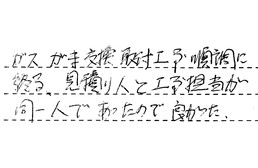 ガスガマ交換取付工事順調に
終る、見積り人と工事担当が
同一人であったので良かった.